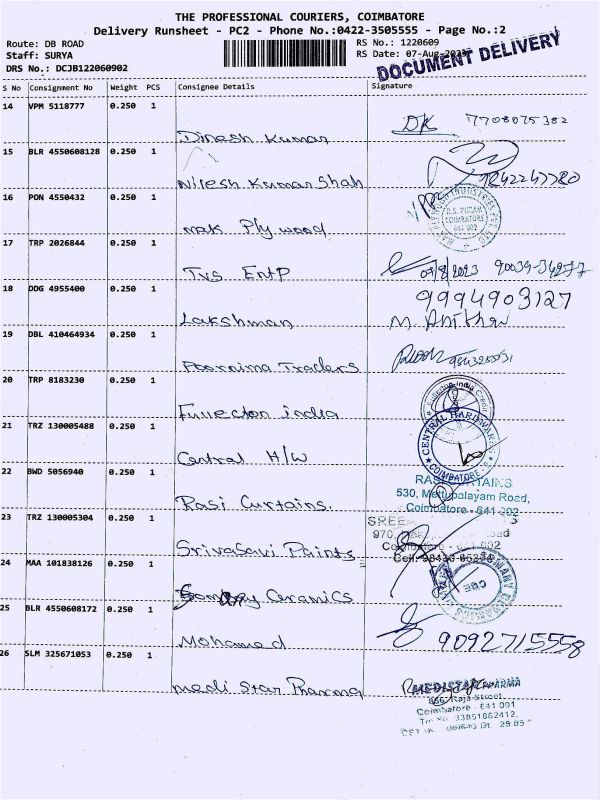 THE PROFESSIONAL COURIERS, COIMBATORE
Delivery Runsheet - PC2 - Phone No.:0422-3505555 - Page No.:2
Route: DB ROAD
RS No.: 1220609
Staff: SURYA
RS Date: 07-Aug-2023
DRS No.: DCJB122060902
DOCUMENT DELIVERY
S No Consignment No Weight PCS Consignee Details Signature
14 VPM 5118777 0.250 1
Dinesh Kumar DK 7708075382
15 BLR 4550608128 0.250 1
Nilesh Kumar Shah 9842247780
16 PON 4550432 0.250 1
mak Plywood
R.S. PURAM
COIMBATORE
641 002
17 TRP 2026844 0.250 1
Tvs EntP 07/8/2023 90039-34277
18 DDG 4955400 0.250 1
9994903127
Lakshman M.
19 DBL 410464934 0.250 1
Poornima Traders
20 TRP 8183230 0.250 1
Fullecton india
21 TRZ 130005488 0.250 1
CENTRAL HARDWARE
COIMBATORE
Central H/W
22 BWD 5056940 0.250 1
RASI CURTAINS
530, Mettupalayam Road,
Coimbatore - 641 002
Rasi Curtains.
23 TRZ 130005304 0.250 1
SREE
970,
641 002
Srivasavi Paints
24 MAA 101838126 0.250 1
CBE
Bombay Ceramics
25 BLR 4550608172 0.250 1
Mohamed 9092715558
26 SLM 325671053 0.250 1
medi Star Pharma
MEDISTAR PHARMA
Raja Street,
Coimbatore - 641 001
33851862412